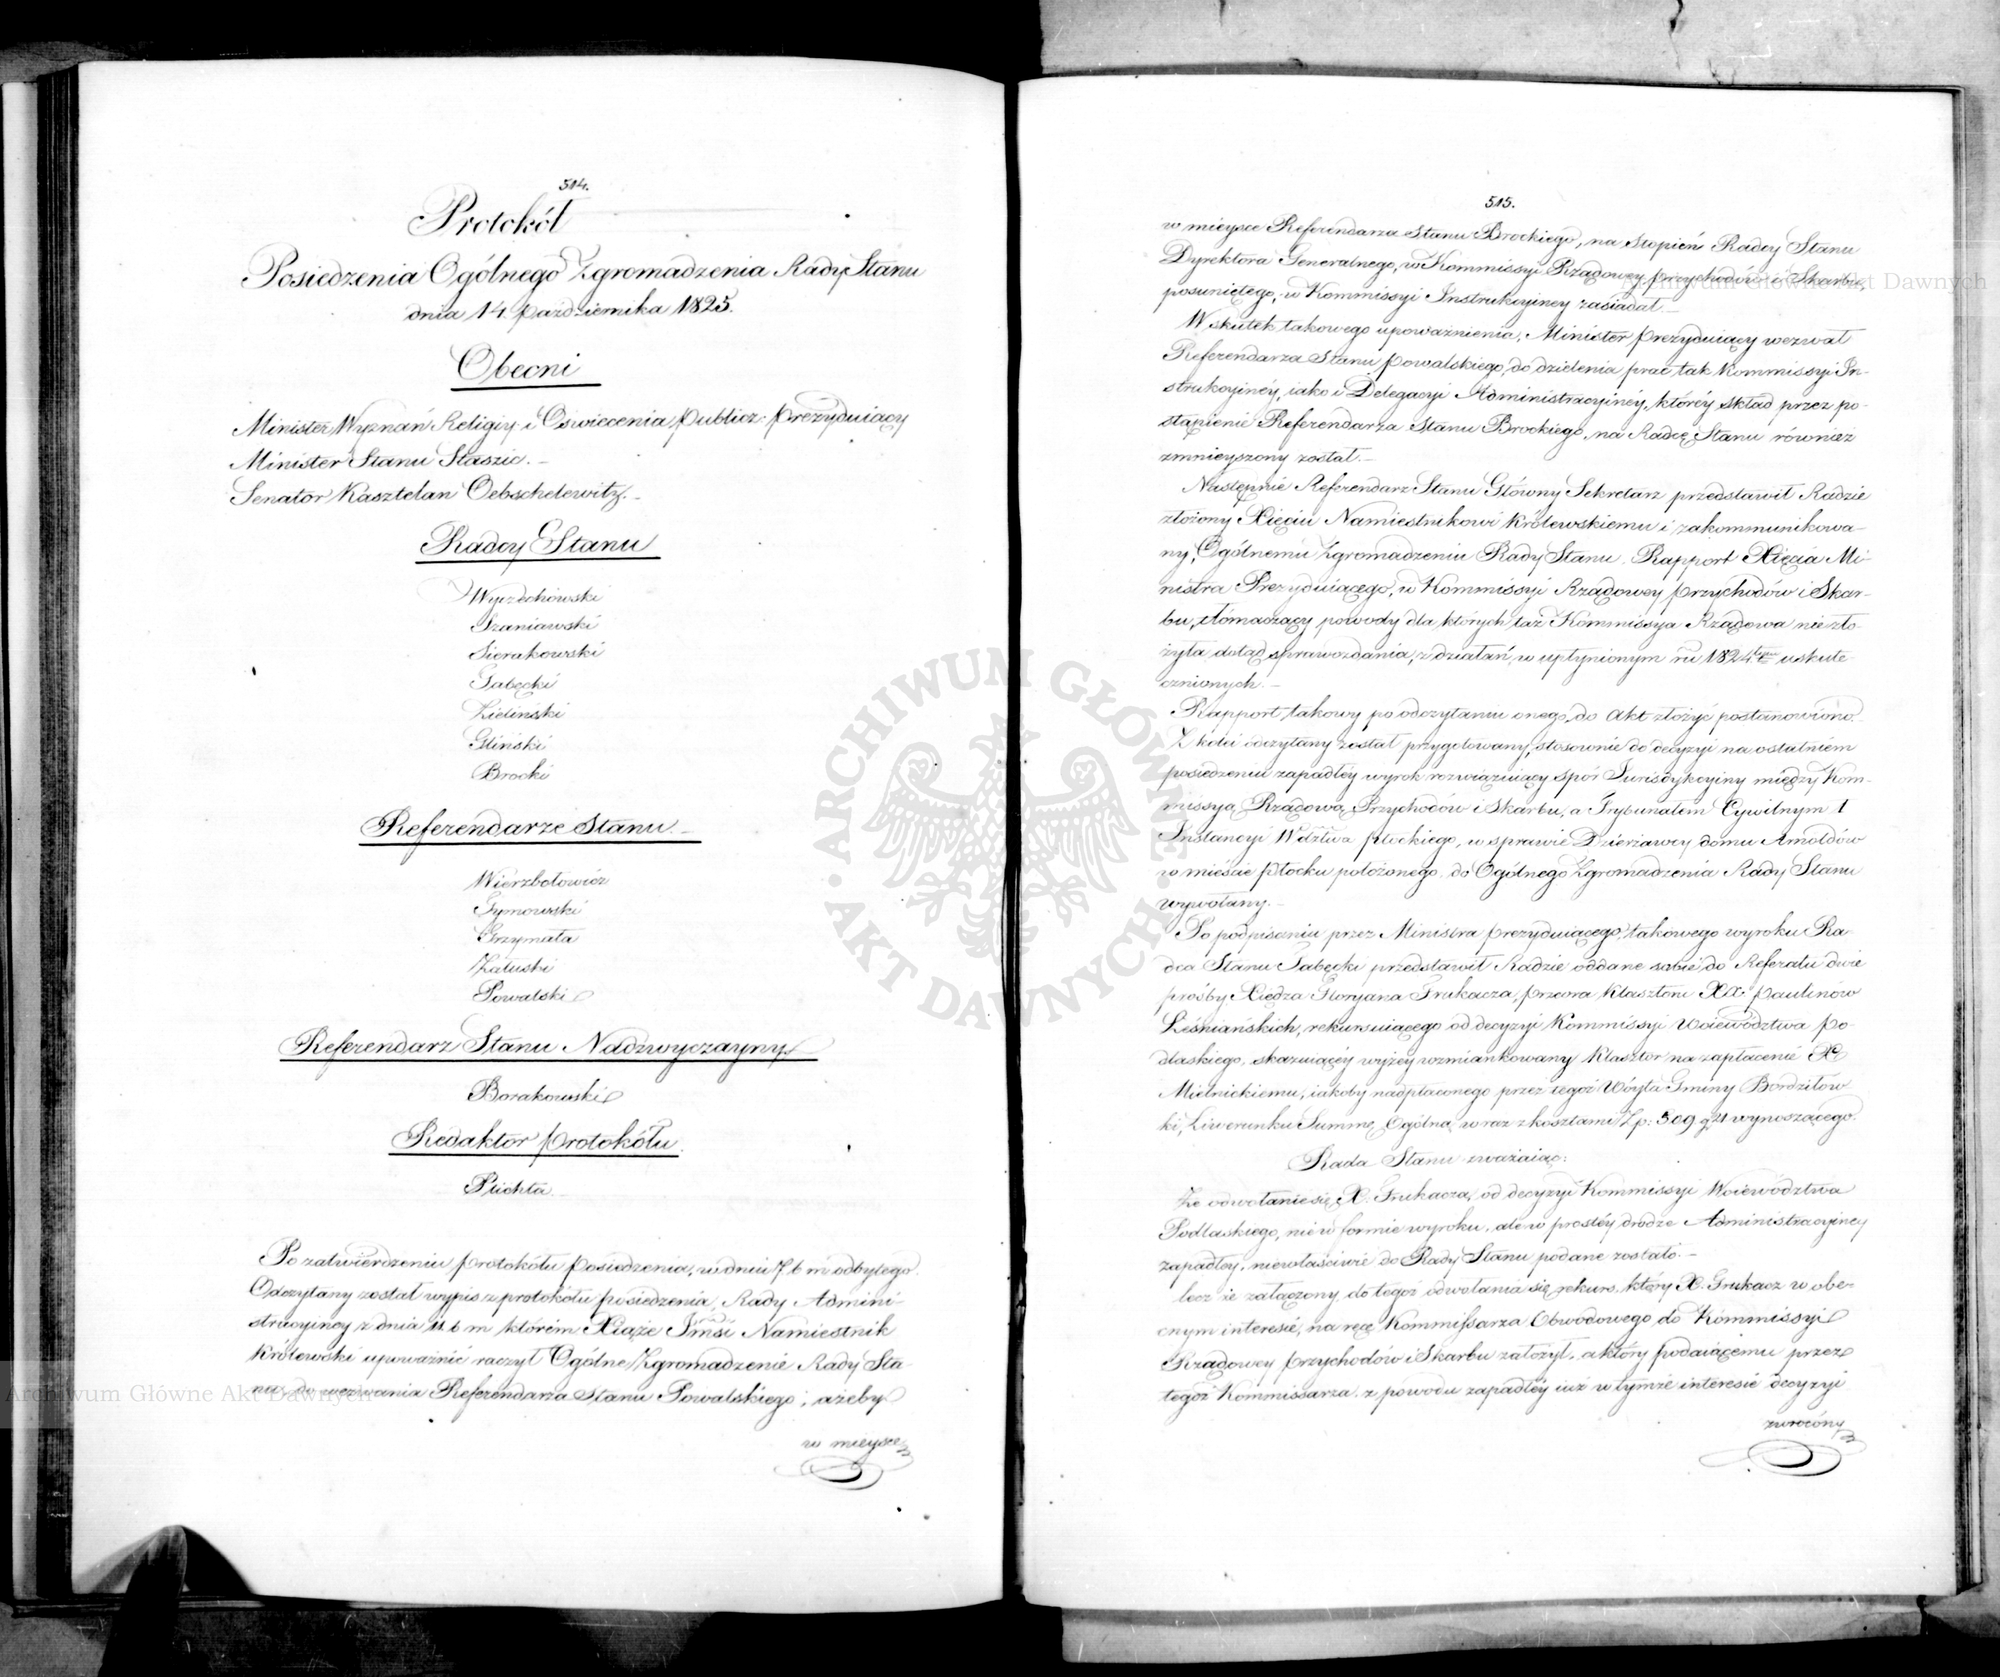 514.
Protokół
Posiedzenia Ogólnego Zgromadzenia Rady Stanu
dnia 14 Października 1825.
Obecni
Minister Wyznań Religiy: i Oświecenia Publicz: Prezyduiący
Minister Stanu Staszic. –
Senator Kasztelan Oebschelewitz. –
Radcy Stanu
Wyczechowski
Szaniawski
Sierakowski
Tabęcki
Zieliński
Gliński
Brocki
Referendarze Stanu. –
Wierzbołowicz
Tymowski
Grzymała
Załuski
Powalski
Referendarz Stanu Nadzwyczayny
Borakowski
Redaktor Protokółu.
Plichta. –
Po zatwierdzeniu Protokółu Posiedzenia, w dniu 7 b m odbytego.
Odczytany został wypis z protokółu posiedzenia, Rady Admini-
stracyiney z dnia 11 b m którém Xiąże Jmść Namiestnik
Królewski upoważnić raczył Ogólne Zgromadzenie Rady Sta-
nu, do wezwania Referendarza Stanu Powalskiego; ażeby
w mieysce
515.
w mieysce Referendarza Stanu Brockiego, na stopień Radcy Stanu
Dyrektora Generalnego, w Kommissyi Rządowey Przychodów i Skarbu,
posuniętego, w Kommissyi Instrukcyiney zasiadał. –
W skutek takowego upoważnienia, Minister Prezyduiący wezwał
Referendarza Stanu Powalskiego, do dzielenia prac tak Kommissyi In-
strukcyinéy, iako i Delegacyi Administracyinéy, któréy skład przez po-
stąpienie Referendarza Stanu Brockiego, na Radcę Stanu również
zmnieyszony został. –
Następnie Referendarz Stanu Główny Sekretarz przedstawił Radzie
złożony Xięciu Namiestnikowi Królewskiemu i zakommunikowa-
ny, Ogólnemu Zgromadzeniu Rady Stanu, Rapport Xięcia Mi-
nistra Prezyduiącego, w Kommissyi Rządowey Przychodów i Skar-
bu, tłómaczący powody dla których taż Kommissya Rządowa nie zło-
żyła dotąd sprawozdania, z działań, w upłynionym ru 1824tym uskute-
cznionych. –
Rapport takowy po odczytaniu onego, do Akt złożyć postanowiono. –
Z kolei odczytany został przygotowany, stosownie do decyzyi na ostatniem
posiedzeniu zapadłéy wyrok rozwiązuiący spór Jurisdykcyiny między Kom-
missyą Rządową Przychodów i Skarbu, a Trybunałem Cywilnym I
Instancyi Wdztwa Płockiego, w sprawie Dzierżawcy domu Arnoldów
w mieście Płocku położonego, do Ogólnego Zgromadzenia Rady Stanu
wywołany. –
Po podpisaniu przez Ministra Prezyduiącego, takowego wyroku Ra-
dca Stanu Tabęcki przedstawił Radzie oddane sobie do Referatu dwie
prośby Xiędza Floryana Trukacza, Przeora Klasztoru XX. Paulinów
Leśniańskich, rekursuiącego od decyzyi Kommissyi Woiewództwa Po-
dlaskiego, skazuiącéy wyżey wzmiankowany Klasztor na zapłacenie X
Mielnickiemu, iakoby nadpłaconego przez tegoż Wóyta Gminy Bordziłow
ki, Liwerunku Summę Ogólną wraz z kosztami Zp: 309 g 21 wynoszącego.
Rada Stanu zważaiąc:
Że odwołanie się X. Trukacza, od decyzyi Kommissyi Woiewództwa
Podlaskiego, nie w formie wyroku, ale w prostéy drodze Administracyiney
zapadłey, niewłaściwie do Rady Stanu podane zostało. –
lecz że załączony do tegoż odwołania się rekurs, który X. Trukacz w obe-
cnym interesie, na ręce Kommissarza Obwodowego do Kommissyi
Rządowey Przychodów i Skarbu założył, a który podaiącemu przez
tegoż Kommissarza z powodu zapadłéy iuż w tymże interesie decyzyi
zwrócony
ARCHIWUM GŁÓWNE AKT DAWNYCH
Archiwum Główne Akt Dawnych
Archiwum Główne Akt Dawnych